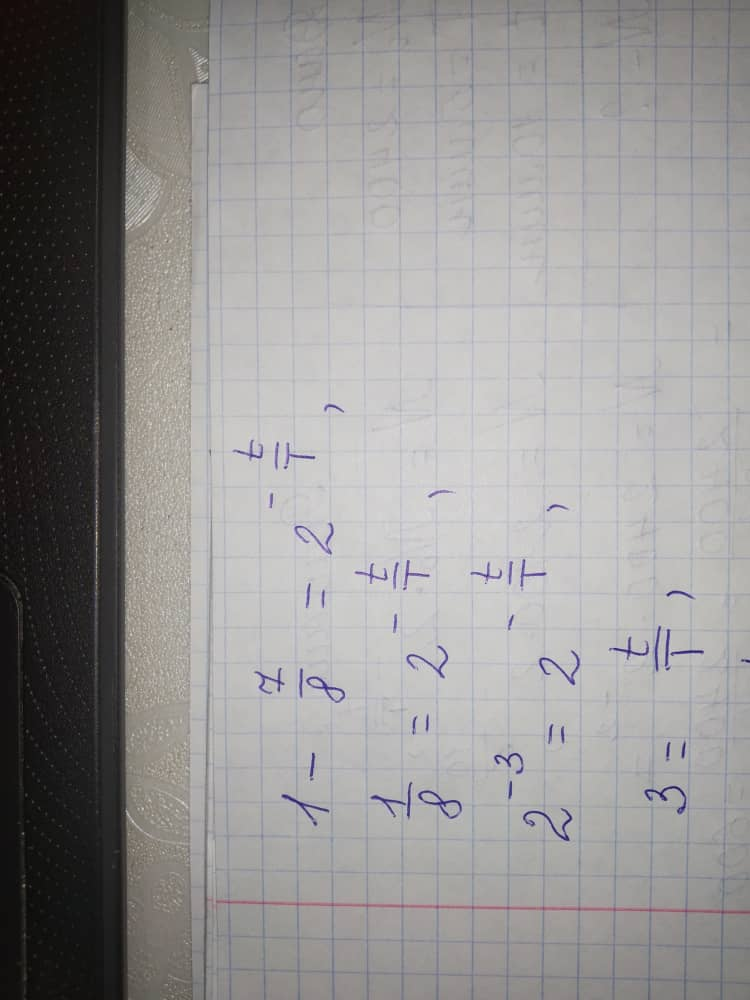 1 - 7/8 = 2^(-t/T),
1/8 = 2^(-t/T),
2^(-3) = 2^(-t/T),
3 = t/T,